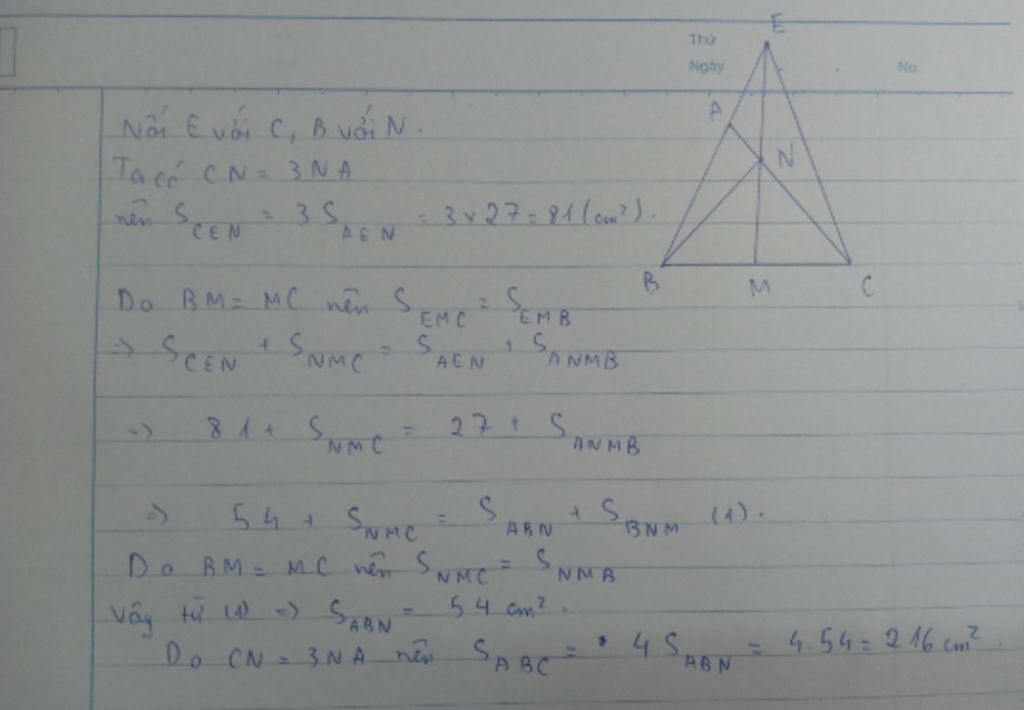 Thứ
Ngày
No.
E
A
N
B
M
C
Nối E với C, B với N.
Ta có CN = 3NA
nên S_CEN = 3 S_AEN = 3 x 27 = 81 (cm²).
Do BM = MC nên S_EMC = S_EMB
=> S_CEN + S_NMC = S_AEN + S_ANMB
=> 81 + S_NMC = 27 + S_ANMB
=> 54 + S_NMC = S_ABN + S_BNM (1).
Do BM = MC nên S_NMC = S_NMB
Vậy từ (1) => S_ABN = 54 cm².
Do CN = 3NA nên S_ABC = 4 S_ABN = 4.54 = 216 cm².